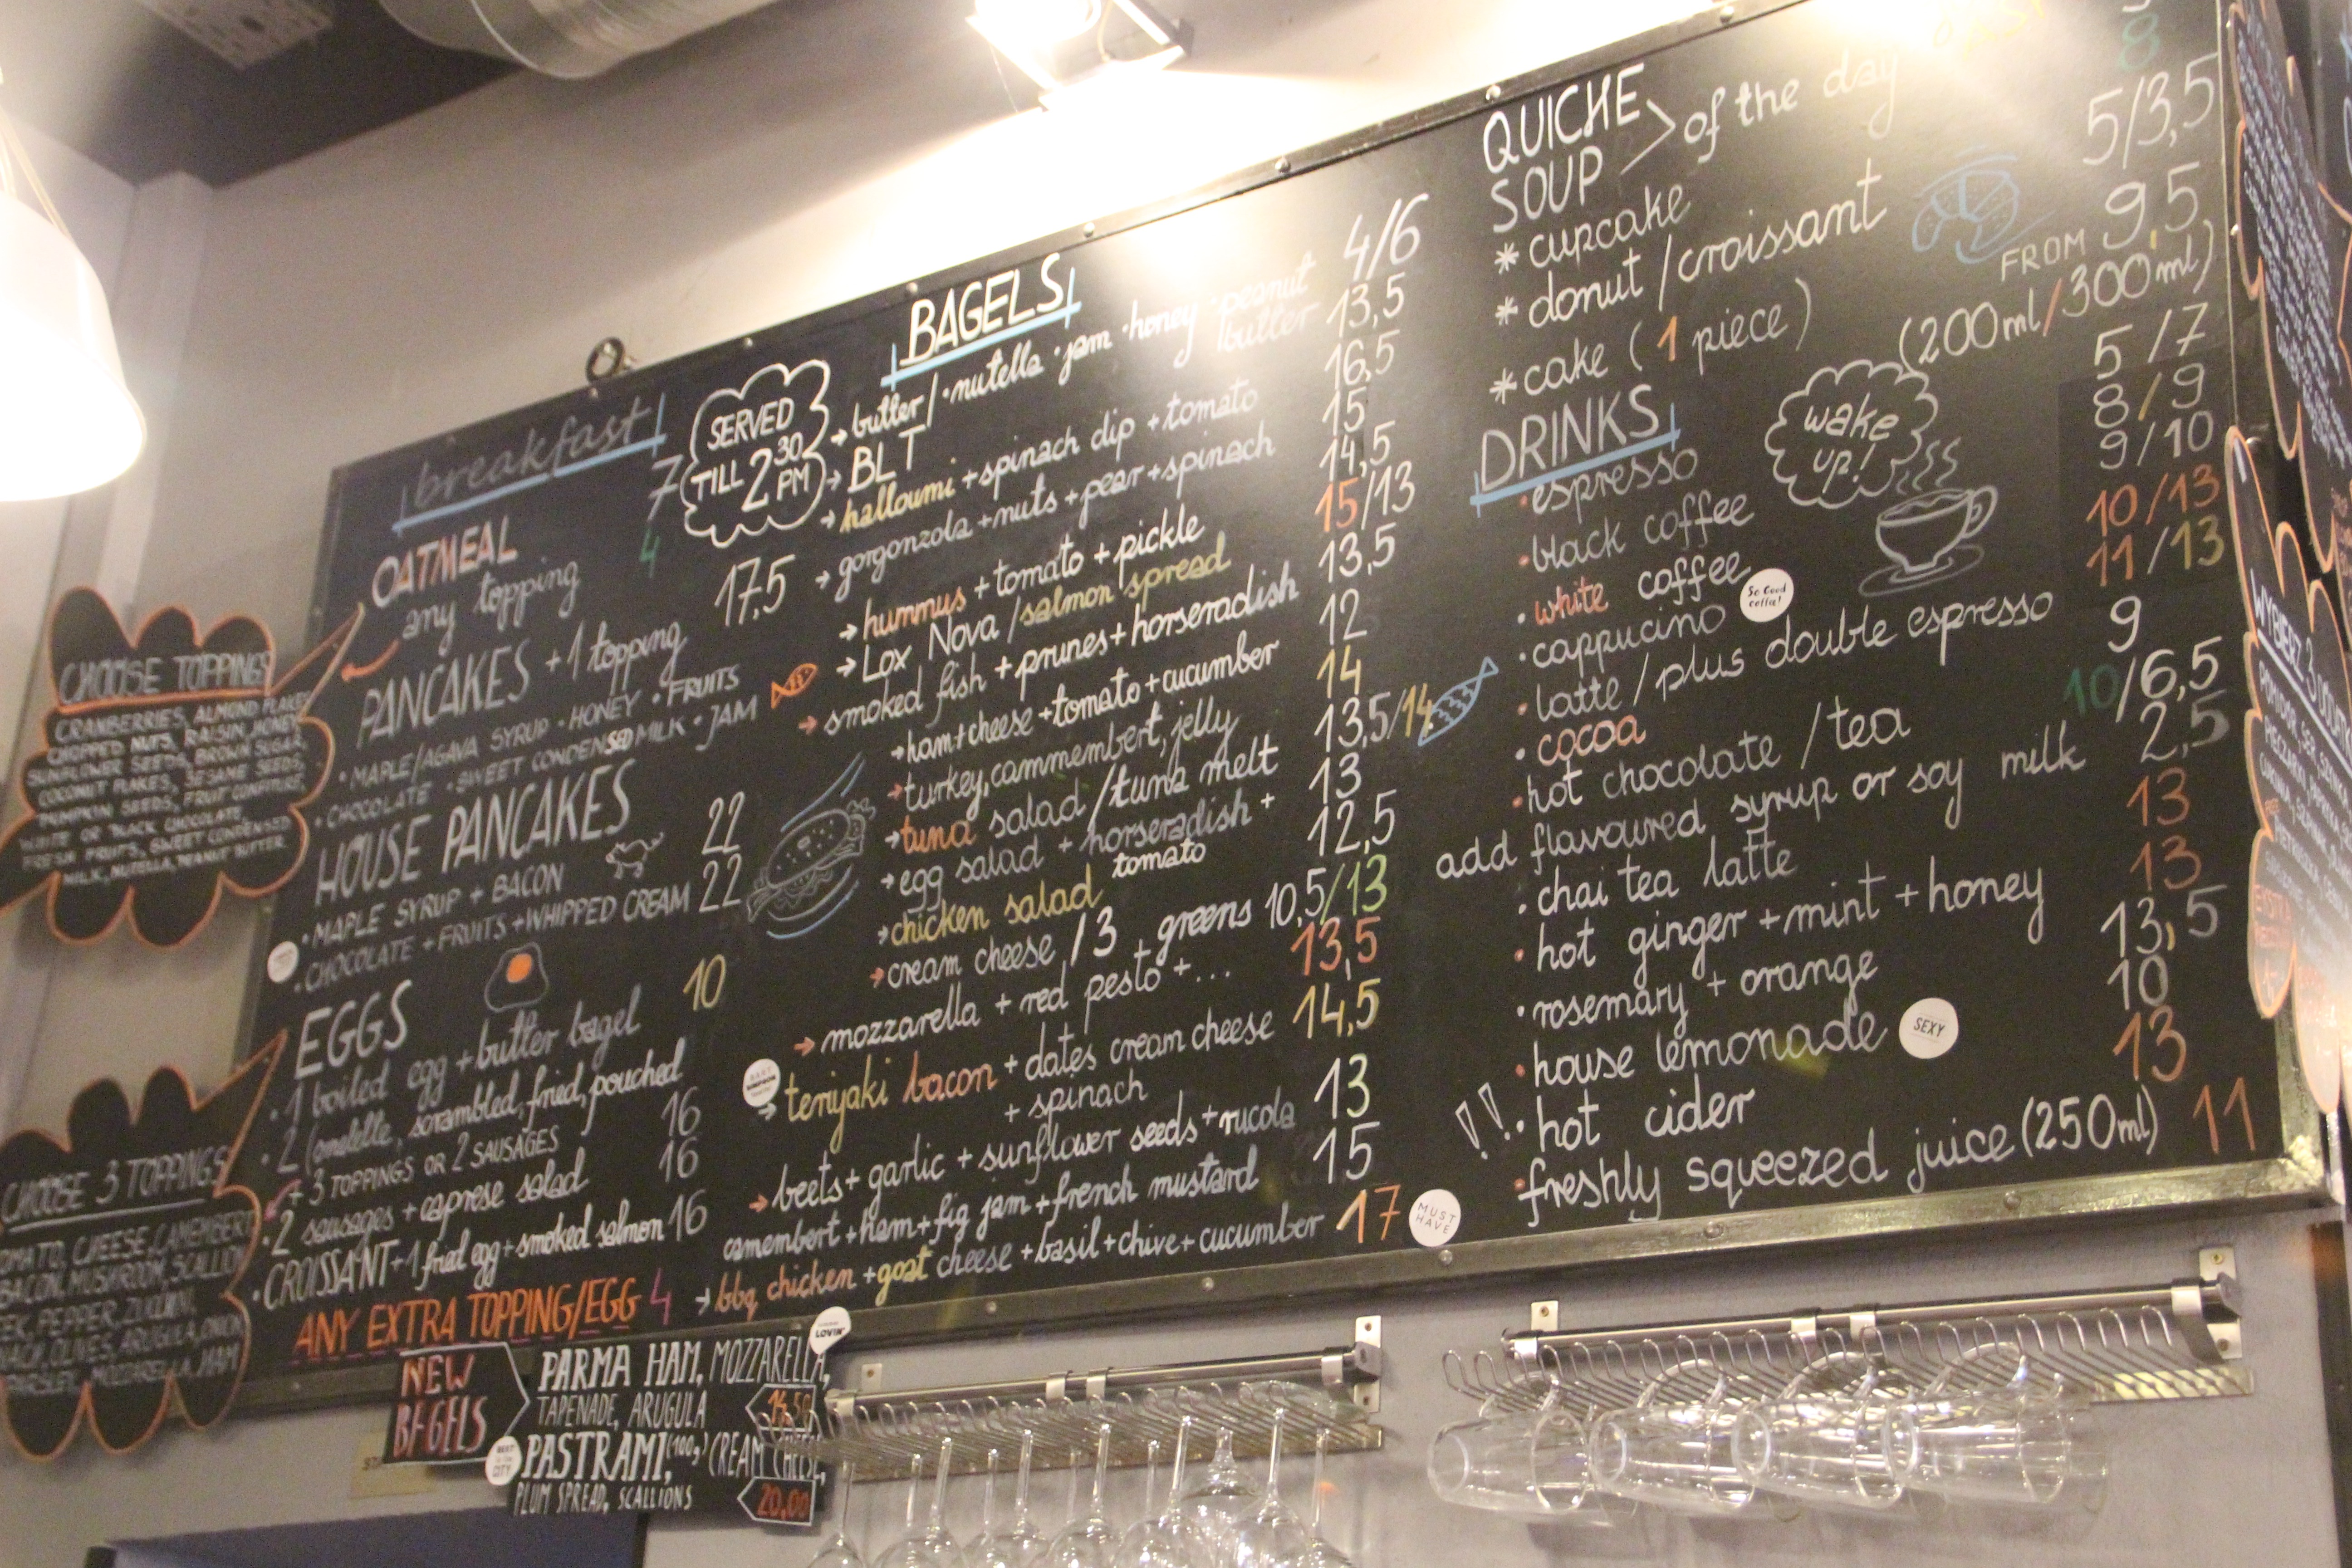 breakfast
SERVED
TILL 2 30 PM
OATMEAL 7
any topping 4
PANCAKES + 1 topping 17,5
• MAPLE/AGAVA SYRUP • HONEY • FRUITS
• CHOCOLATE • SWEET CONDENSED MILK • JAM
HOUSE PANCAKES
• MAPLE SYRUP + BACON 22
• CHOCOLATE + FRUITS + WHIPPED CREAM 22
EGGS
• 1 boiled egg + butter bagel 10
• 2 (omlelle, scrambled, fried, pouched
+ 3 TOPPINGS OR 2 SAUSAGES 16
• 2 sausages + caprese salad 16
• CROISSANT + 1 fried egg + smoked salmon 16
ANY EXTRA TOPPING/EGG 4
CHOOSE TOPPINGS
CRANBERRIES, ALMOND FLAKES
CHOPPED NUTS, RAISIN, HONEY
SUNFLOWER SEEDS, BROWN SUGAR,
COCONUT FLAKES, SESAME SEEDS,
PUMPKIN SEEDS, FRUIT CONFITURE,
WHITE OR BLACK CHOCOLATE,
FRESH FRUITS, SWEET CONDENSED
MILK, NUTELLA, PEANUT BUTTER
CHOOSE 3 TOPPINGS
TOMATO, CHEESE, CAMEMBERT
BACON, MUSHROOM, SCALLION
PEPPER, ZUCCINI,
OLIVES, ARUGULA, ONION
PARSLEY, MOZZARELLA, HAM
BAGELS
→ butter/ • nutella • jam • honey • peanut butter 4/6
→ BLT 13,5
→ halloumi + spinach dip + tomato 16,5
→ gorgonzola + nuts + pear + spinach 15
→ hummus + tomato + pickle 14,5
→ Lox Nova / salmon spread 15/13
→ smoked fish + prunes + horseradish 13,5
→ ham + cheese + tomato + cucumber 12
→ turkey, cammembert, jelly 14
→ tuna salad / tuna melt 13,5/14
→ egg salad + horseradish + tomato 13
→ chicken salad 12,5
→ cream cheese /3 + greens 10,5/13
→ mozzarella + red pesto + ... 13,5
→ teriyaki bacon + dates cream cheese 14,5
+ spinach
→ beets + garlic + sunflower seeds + rucola 13
camembert + ham + fig jam + french mustard 15
→ bbq chicken + goat cheese + basil + chive + cucumber 17
MUST HAVE
QUICHE
SOUP > of the day
8
* cupcake
* donut / croissant 5/3,5
* cake (1 piece) FROM 9,5
DRINKS (200ml/300ml)
wake up!
• espresso 5/7
• black coffee 8/9
• white coffee 9/10
• cappucino 10/13
So Good coffee!
• latte / plus double espresso 11/13
• cocoa 9
• hot chocolate / tea 10/6,5
add flavoured syrup or soy milk 2,5
• chai tea latte 13
• hot ginger + mint + honey 13
• rosemary + orange 13,5
• house lemonade 10
SEXY
!! • hot cider 13
• freshly squeezed juice (250ml) 11
NEW
BAGELS
PARMA HAM, MOZZARELLA,
TAPENADE, ARUGULA
PASTRAMI, (100g) CREAM CHEESE,
PLUM SPREAD, SCALLIONS 20,00
LOVIN'
BEST
CITY
WYBIERZ 3